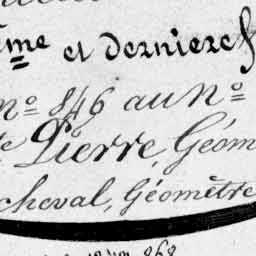 me et dernière
No 846 au No
Pierre, Géom
cheval, Géomètre
868